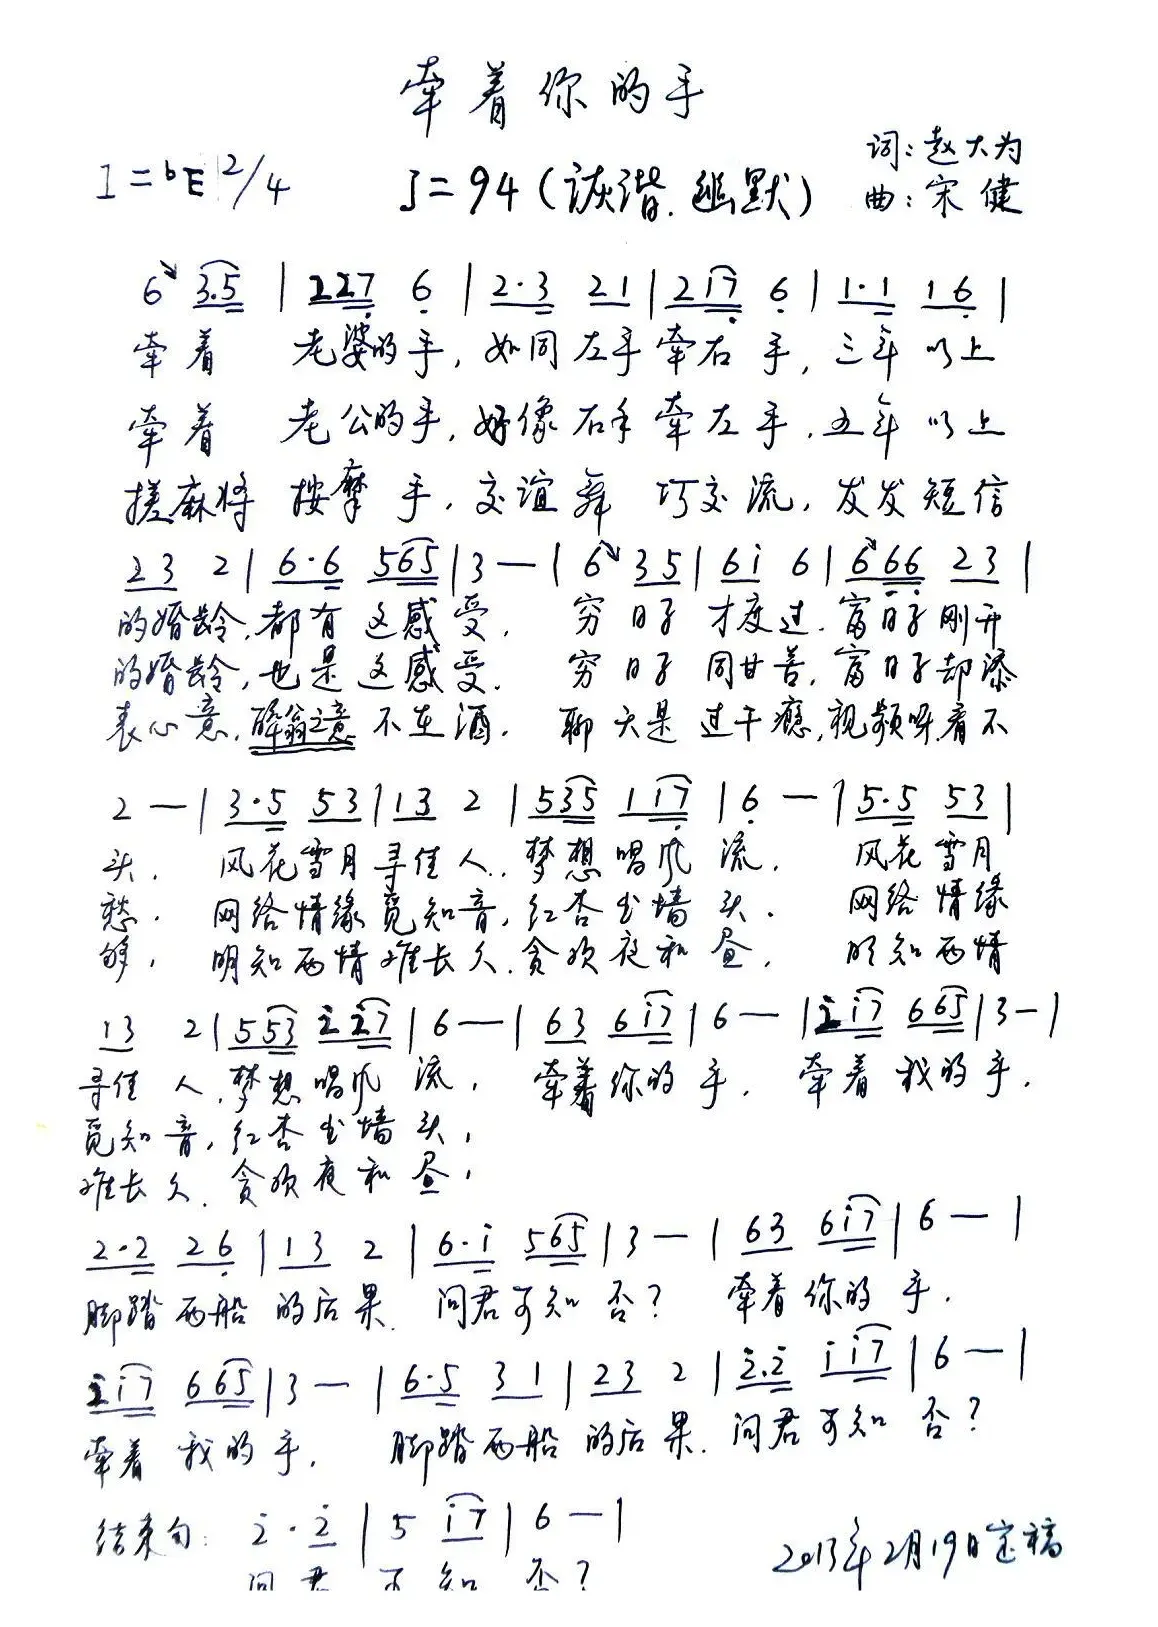 牵着你的手
1=bE 2/4 ♩=94(诙谐.幽默) 词:赵大为
曲:宋健
6 3.5 | 227 6 | 2·3 21 | 2i7 6 | 1·1 16 |
牵着 老婆的手, 如同左手牵右手, 三年以上
牵着 老公的手, 好像右手牵左手, 五年以上
搓麻将 按摩手, 交谊舞 巧交流, 发发短信
23 2 | 6·6 565 | 3 — | 6 35 | 6i 6 | 666 23 |
的婚龄, 都有这感受. 穷日子才度过. 富日子刚开
的婚龄, 也是这感受. 穷日子同甘苦, 富日子却添
表心意, 醉翁之意不在酒. 聊天是过干瘾, 视频呀看不
2 — | 3·5 53 | 13 2 | 535 1i7 | 6 — | 5·5 53 |
头. 风花雪月寻佳人, 梦想唱风流. 风花雪月
愁. 网络情缘觅知音, 红杏出墙头. 网络情缘
够, 明知两情难长久. 贪欢夜和昼. 明知两情
13 2 | 553 i27 | 6 — | 63 6i7 | 6 — | 2i7 665 | 3 — |
寻佳人, 梦想唱风流. 牵着你的手. 牵着我的手.
觅知音, 红杏出墙头,
难长久. 贪欢夜和昼,
2·2 26 | 13 2 | 6·i 565 | 3 — | 63 6i7 | 6 — |
脚踏两船的后果. 问君可知否? 牵着你的手.
2i7 665 | 3 — | 6·5 31 | 23 2 | 2·2 ii7 | 6 — |
牵着我的手. 脚踏两船的后果. 问君可知否?
结束句: 2·2 | 5 i7 | 6 — |
问君可知否?
2013年2月19日定稿